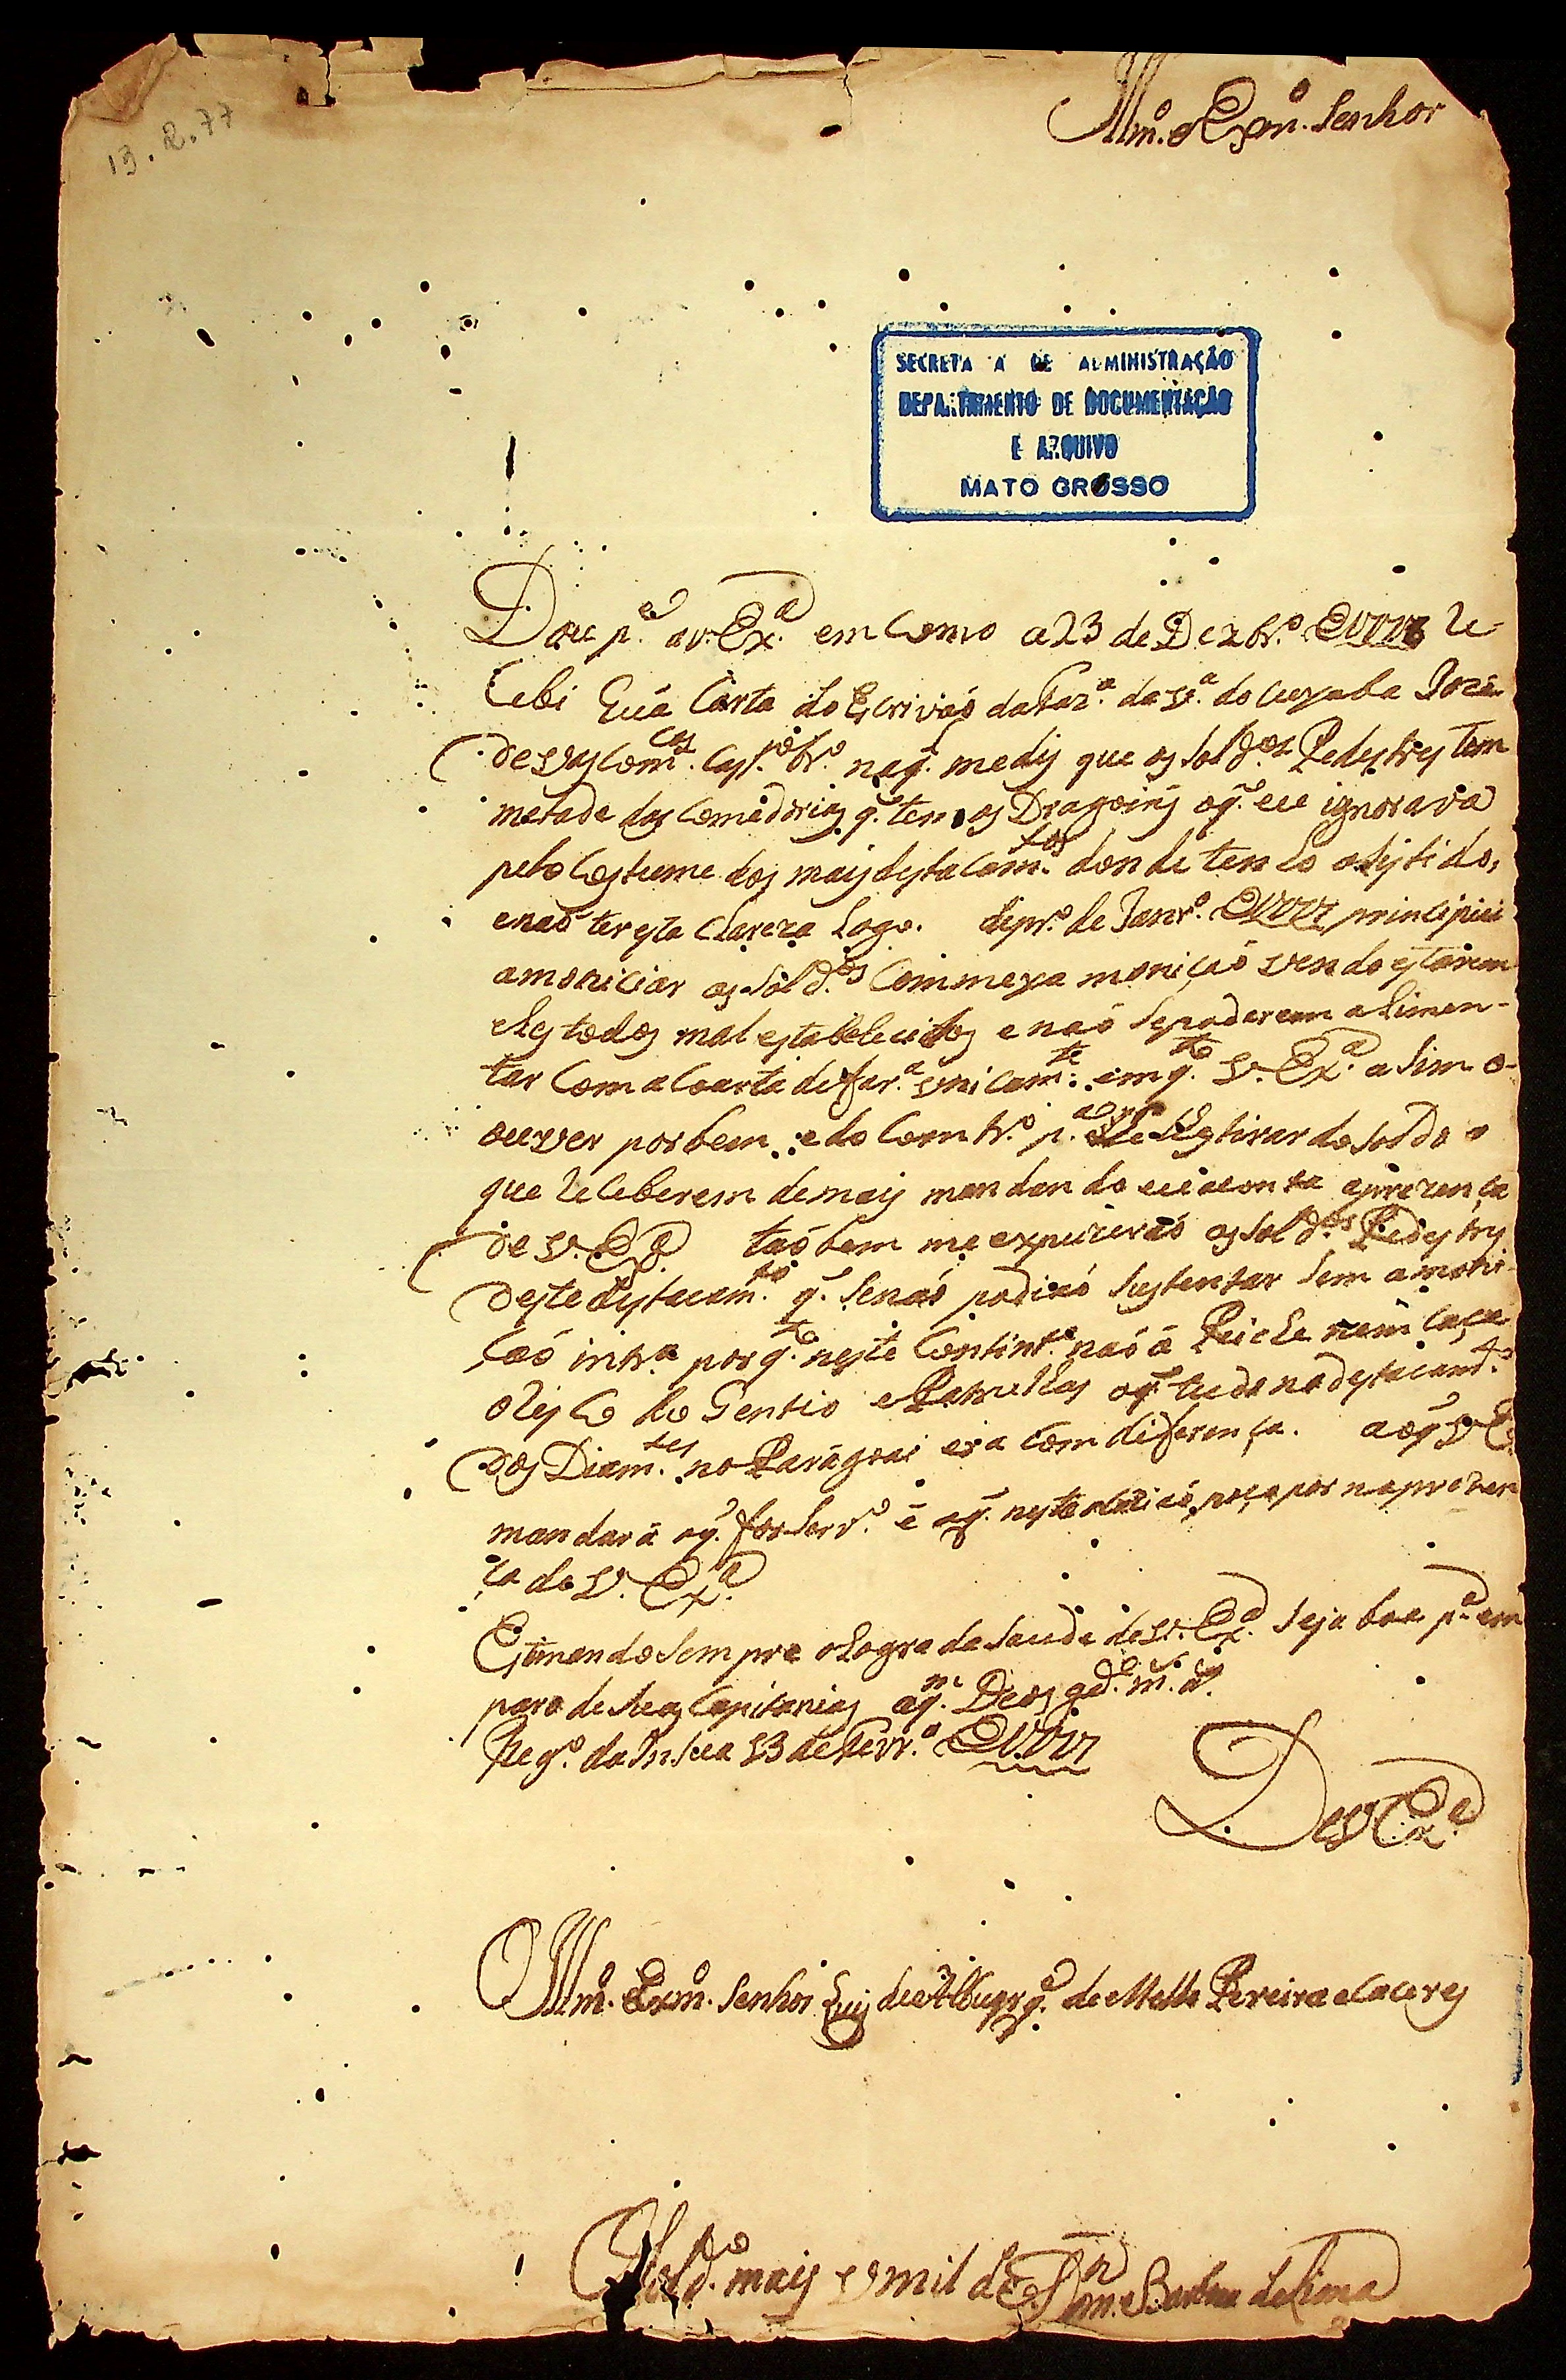 13.2.77
Illm.º e Exm.º Senhor
SECRETA A DE ADMINISTRAÇÃO
DEPARTAMENTO DE DOCUMENTAÇÃO
E ARQUIVO
MATO GROSSO
Dou p.te a V. Ex.ª em Como a 23 de Dezbr.º Re
Cebi huá Carta do Escrivaó da Faz.ª da V.ª do Cuyaba Joze
de Vascom.cos naq. me dis que os Sold.os Pedestres tem
metade das Comedorias q. tem os Dragoins oq. eu ignorava
pelo Custume dos mais destacam.tos donde tenho asistido,
enaó ter esta Clareza Logo. de Janr.º principiei
amoniciar os Sold.os Com meya moniçaó vendo estarem
elles todos mal estabelecidos e naó Se poderem a Limen-
tar Com a Coarta de far.ª unicam.te em q.to V. Ex.ª a Sim o
ouver por bem e do Contr.º p.ª Se tirar do Soldo o
que Receberem demais mandando a prezença
de V. Ex.ª taóbem me expuzeraó os Sold.os Pedestres
deste destacam.to q. Senaó podiaó Sustentar Sem a moni-
çaó intr.ª porq. neste Contint.e naó á Peiche nem Caça
o Risco do Gentio e Patrulhas oq. tudo no destacam.to
dos Diam.tes no Paragoai era Com diferença. aoq. V. Ex.
mandará oq. for Serv.º é oq. nesta ocaziaó poço por na prezen
ça de V. Ex.ª
Estimando Sempre o Logra da Saude de V. Ex.ª Seja boa p.ª em
paro de Suas Capitanias aq.m Deos gd.e m.s a.s
Reg.º da Insua 13 de Fevr.º
De V. Ex.ª
Illm.º Exm.º Senhor Luis de Albuqrq.e de Mello Pereira e Caceres
Sold.º mais umil de V. Ex.ª
Barboza de Lima